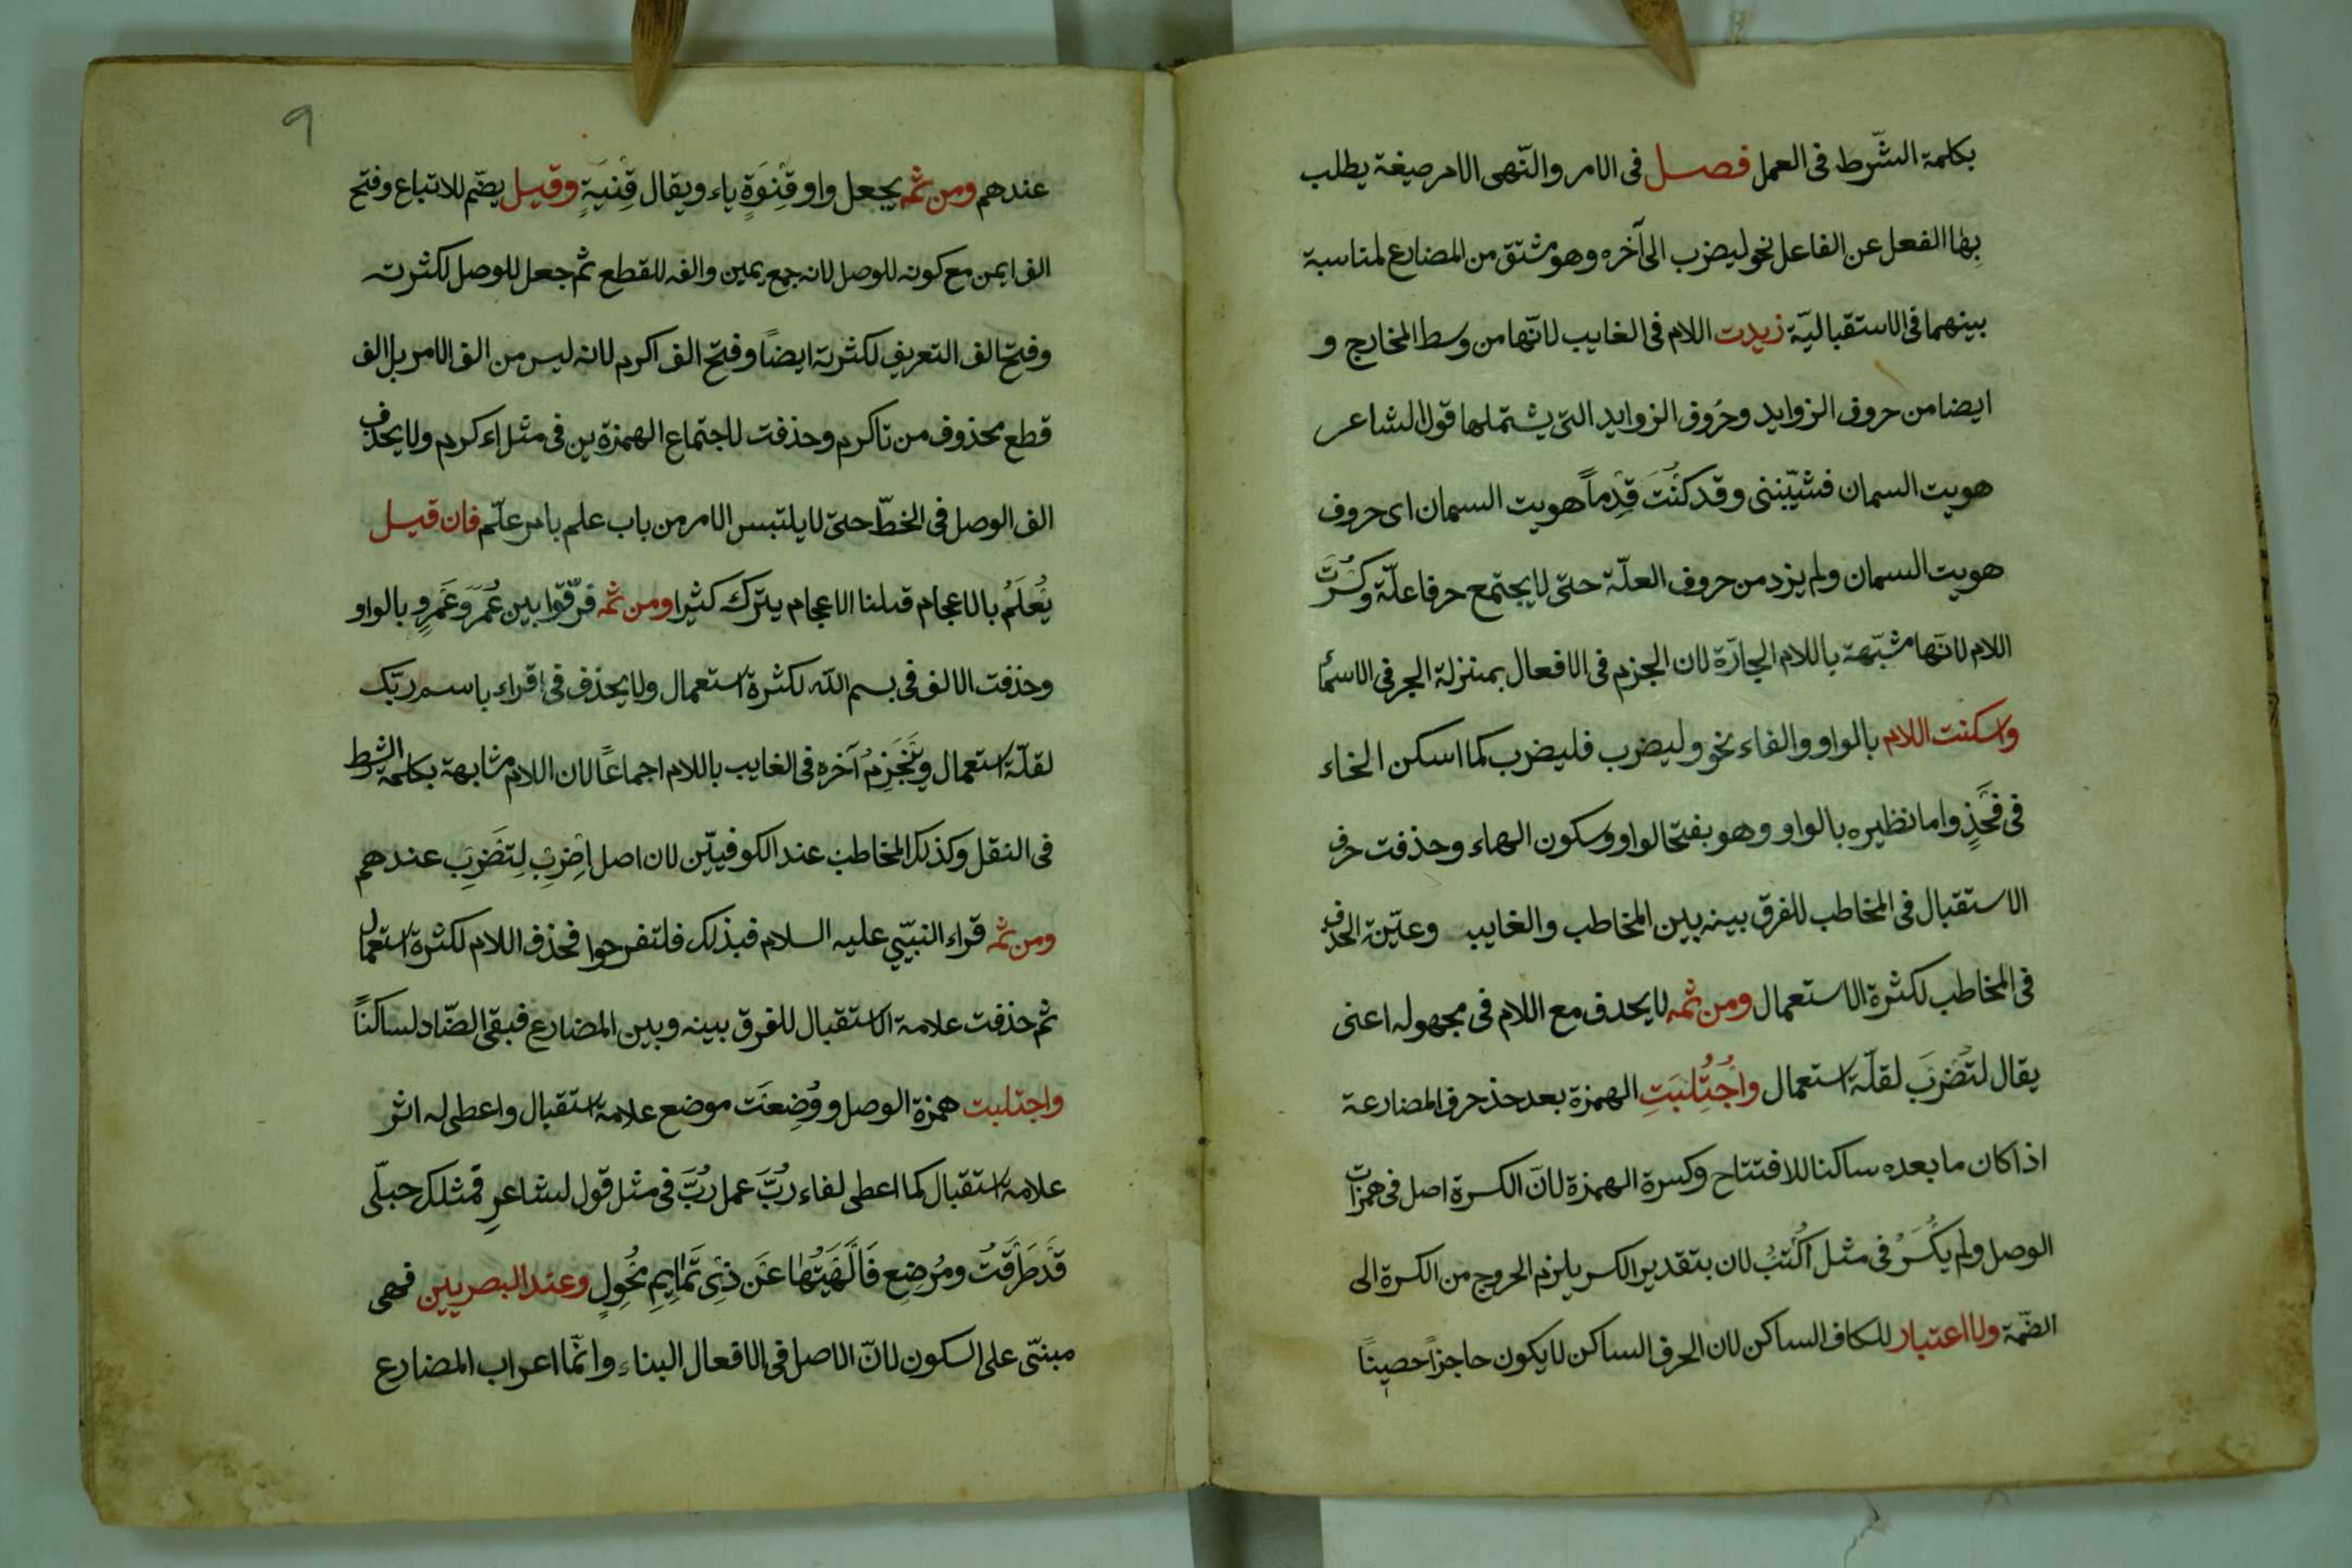 بكلمة الشّرط فى العمل فصل فى الامر والنّهى الامر صيغة يطلب
بها الفعل عن الفاعل نحو ليضرب الى آخره وهو مشتق من المضارع لمناسبة
بينهما فى الاستقباليّة زيدت اللام فى الغايب لانّها من وسط المخارج و
ايضا من حروف الزوايد وحروف الزوايد التى يشتملها قول الشاعر
هويت السمان فشيّبننى وقد كنتَ قِدْماً هويت السمان اى حروف
هويت السمان ولم يزد من حروف العلّة حتى لا يجتمع حرفا علّة وكُسرت
اللام لانّها مشبّهة باللام الجارّة لان الجزم فى الافعال بمنزلة الجر فى الاسما
واسكنت اللام بالواو والفاء نحو وليضرب فليضرب كما اسكن الخاء
فى فَخْذٍ واما نظيره بالواو وهو بفتح الواو وسكون الهاء وحذفت حرف
الاستقبال فى المخاطب للفرق بينه بين المخاطب والغايب وعيّنة الحذف
فى المخاطب لكثرة الاستعمال ومن ثمه لا يحدف مع اللام فى مجهوله اعنى
يقال لتُضْرَبَ لقلّة استعمال واُجْتُلِبَتِ الهمزة بعد حذ حرف المضارعة
اذا كان ما بعده ساكنا للافتتاح وكسرة الهمزة لانّ الكسرة اصل فى همزات
الوصل ولم يكْسَرْ فى مثل اُكْتُبْ لان بتقدير الكسر يلزم الخروج من الكسرة الى
الضّمة ولا اعتبار للكاف الساكن لان الحرف الساكن لا يكون حاجزاً حصيناً
9
عندهم ومن ثمه يجعل واو قِنْوَةٍ ياء ويقال قِنْيَةٍ وقيل يضّم للاتباع وفتح
الف ايمن مع كونه للوصل لانه جمع يمين والفه للقطع ثم جعل للوصل لكثرته
وفتح الف التعريف لكثرته ايضاً وفتح الف اكرم لانه ليس من الف الامر بل الف
قطع محذوف من تاكرم وحذفت لاجتماع الهمزةين فى مثل اءكرم ولا يحذف
الف الوصل فى الخطّ حتى لا يلتبس الامر من باب علم بامر علّم فان قيل
يُعْلَمُ بالاعجام قلنا الاعجام يترك كثيرا ومن ثمه فرّقوا بين عُمَرَ وعَمْرٍو بالواو
وحذفت الالف فى بسم اللّه لكثرة استعمال ولا يحذف فى اقراء باسم ربّك
لقلّة استعمال ويَنْجَزِمُ آخره فى الغايب باللام اجماعاً لان اللام مشابهة بكلمة الشرط
فى النقل وكذلك المخاطب عند الكوفييّن لان اصل اِضْرِبْ لِتَضْرِبَ عندهم
ومن ثمه قراء النبّيى عليه السلام فبذلك فلتفرحوا فحذف اللام لكثرة استعمال
ثم حذفت علامة الاستقبال للفرق بينه وبين المضارع فبقى الضّاد لساكناً
واجتلبت همزة الوصل ووُضِعَت موضع علامة استقبال واعطى له اثر
علامة استقبال كما اعطى لفاء رُبَّ عمل رُبَّ فى مثل قول لشاعرِ فمثلك حبلّى
قَدْ طَرَقْتُ ومُرْضِعٍ فَاَلْهَيْتُهَا عَنْ ذِى تَمَايِمِ مُحْوِلٍ وعند البصريين فهى
مبنىّ على السكون لانّ الاصل فى الافعال البناء وانّما اعراب المضارع